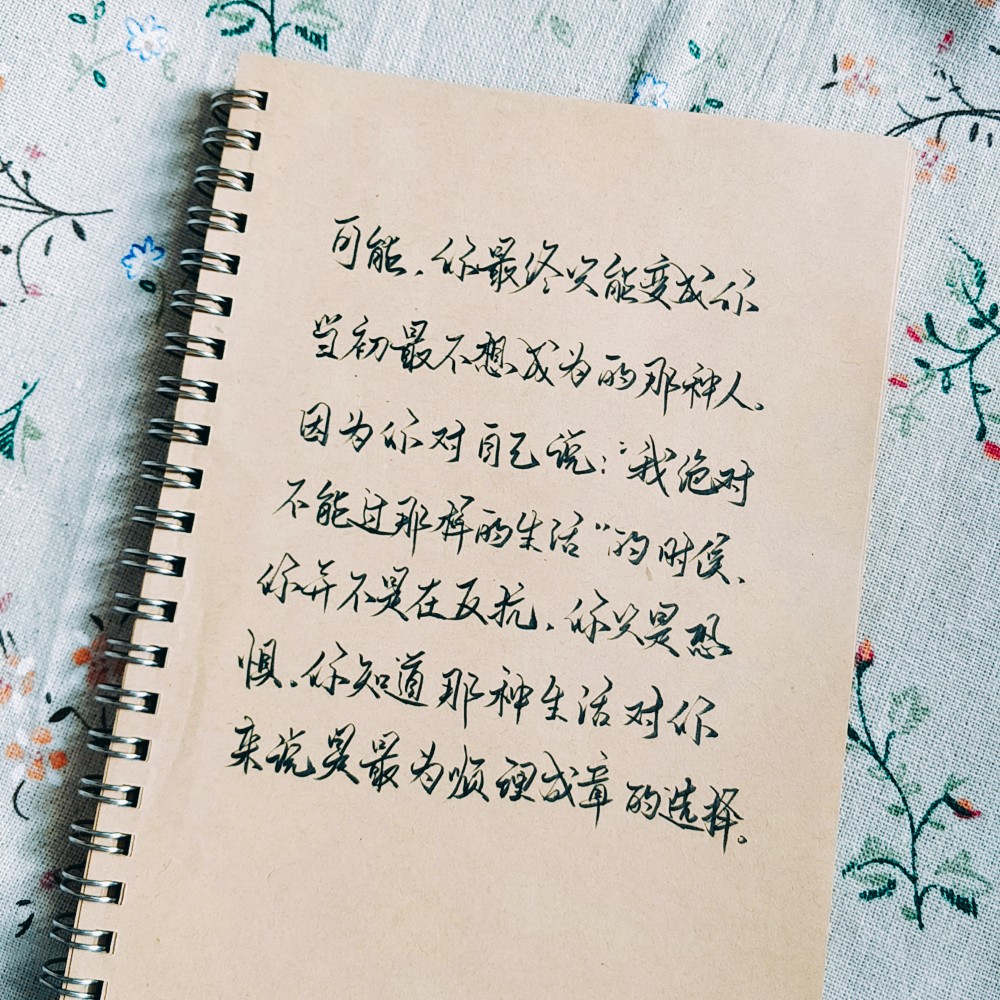 可能，你最终只能变成你
当初最不想成为的那种人。
因为你对自己说：“我绝对
不能过那样的生活”的时侯，
你并不是在反抗，你只是恐
惧，你知道那种生活对你
来说是最为顺理成章的选择。